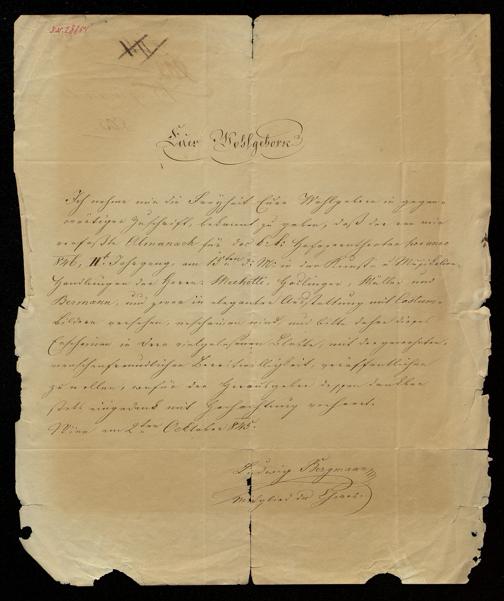 Euer Wohlgeborn
Ich nehme mir die Freyheit Euer Wohlgeborn in gegen-
wärtiger Zuschrift, bekannt zu geben, daß der von mir
verfaßte Almanach für das k: k: Hofoperntheater
846, IIt Jahrgang, am 15ten d: M: in den Kunst- u Musikalien-
Handlungen der Herrn: Mechetti, Haslinger, Müller und
Bermann, und zwar in eleganter Ausstattung mit Costume-
bildern versehen, erscheinen wird, und bitte daher dieses
Erscheinen in Dero vielgelesenen Blatte, mit der gewohnten,
menschenfreundlichen Bereitwilligkeit, veröffentlichen
zu wollen, wofür der Herausgeber dessen dankbar
stets eingedenk mit Hochachtung verharrt.
Wien am 2ten Ocktober 845.
Ludwig Bergmann
Mitglied des Chores